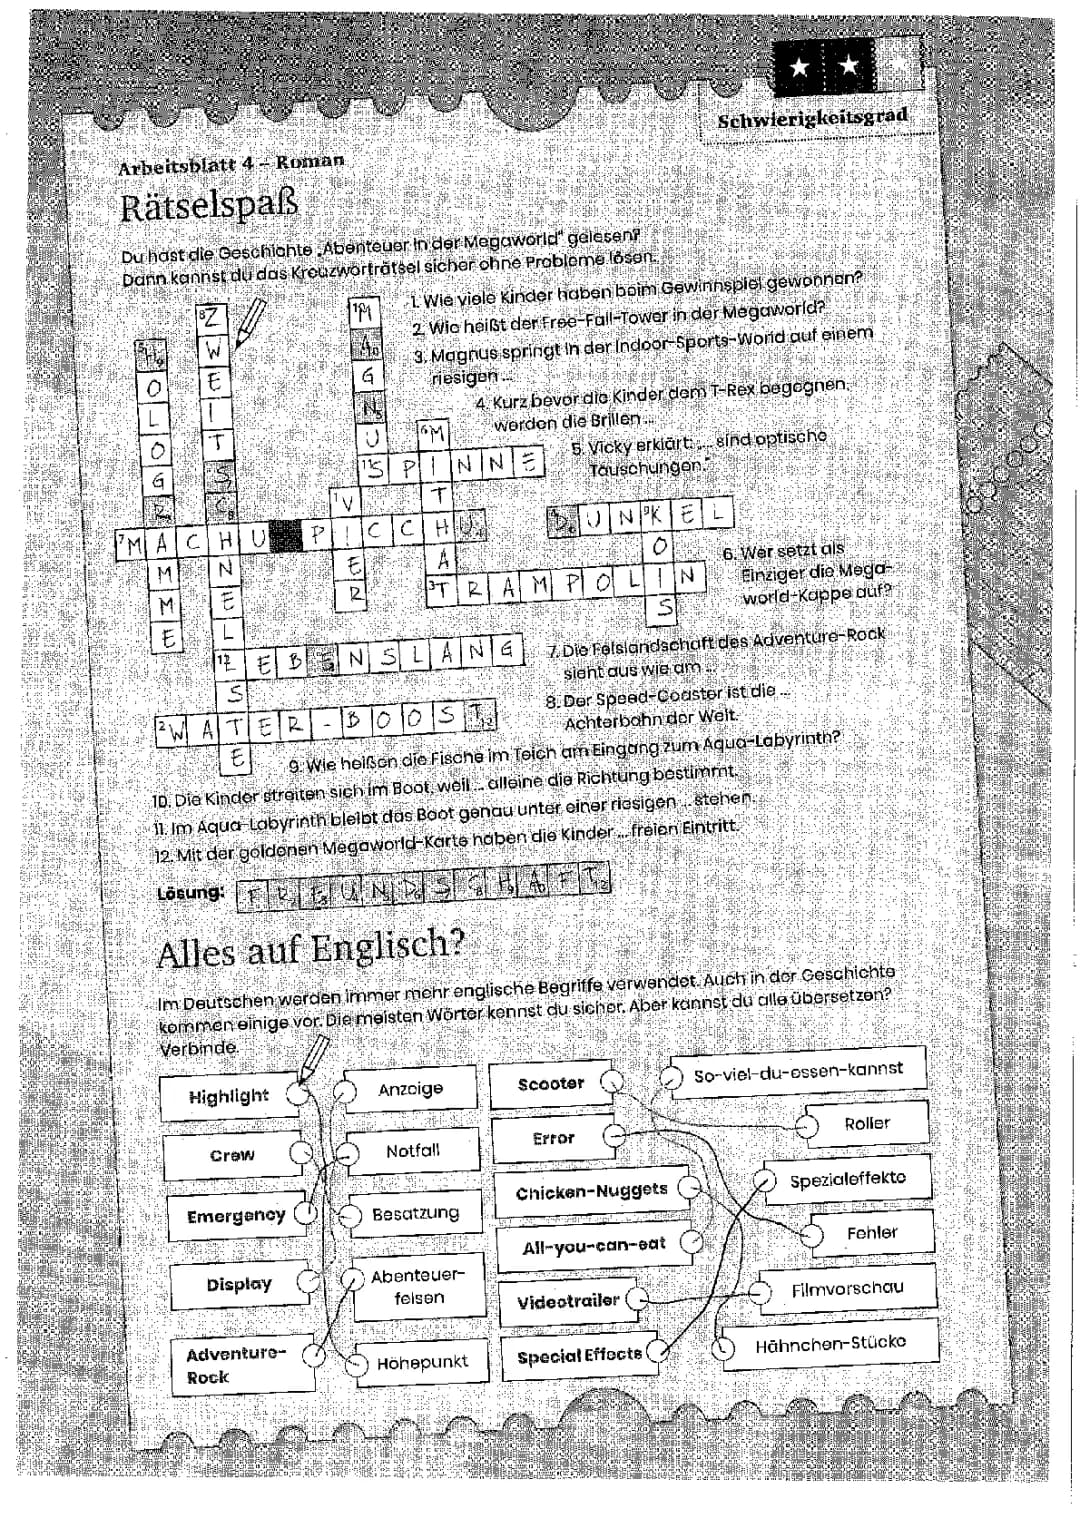 Schwierigkeitsgrad
Arbeitsblatt 4 – Roman
Rätselspaß
Du hast die Geschichte „Abenteuer in der Megaworld“ gelesen?
Dann kannst du das Kreuzworträtsel sicher ohne Probleme lösen.
1. Wie viele Kinder haben beim Gewinnspiel gewonnen?
2. Wie heißt der Free-Fall-Tower in der Megaworld?
3. Magnus springt in der Indoor-Sports-World auf einem
riesigen ...
4. Kurz bevor die Kinder dem T-Rex begegnen,
werden die Brillen ...
5. Vicky erklärt: „... sind optische
Täuschungen.“
6. Wer setzt als
Einziger die Mega-
world-Kappe auf?
7. Die Felslandschaft des Adventure-Rock
sieht aus wie am ...
8. Der Speed-Coaster ist die ...
Achterbahn der Welt.
9. Wie heißen die Fische im Teich am Eingang zum Aqua-Labyrinth?
10. Die Kinder streiten sich im Boot, weil ... alleine die Richtung bestimmt.
11. Im Aqua-Labyrinth bleibt das Boot genau unter einer riesigen ... stehen.
12. Mit der goldenen Megaworld-Karte haben die Kinder ... freien Eintritt.
HOLOGRAMME
ZWEITSCHNELLSTE
MAGNUS
SPINNE
MITHAT
VIER
MACHU PICCHU
DUNKEL
KOIS
TRAMPOLIN
LEBENSLANG
WATER-BOOST
Lösung: FREUNDSCHAFT
Alles auf Englisch?
Im Deutschen werden immer mehr englische Begriffe verwendet. Auch in der Geschichte
kommen einige vor. Die meisten Wörter kennst du sicher. Aber kannst du alle übersetzen?
Verbinde.
Highlight
Crew
Emergency
Display
Adventure-
Rock
Anzeige
Notfall
Besatzung
Abenteuer-
felsen
Höhepunkt
Scooter
Error
Chicken-Nuggets
All-you-can-eat
Videotrailer
Special Effects
So-viel-du-essen-kannst
Roller
Spezialeffekte
Fehler
Filmvorschau
Hähnchen-Stücke